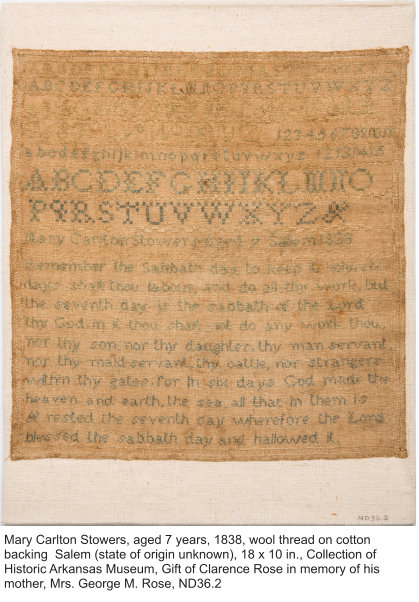 ABCDEFGHIJKLMNOPQRSTUVWXYZ
abcdefghijklmnopqrstuvwxyz
ABCDEFGHIJKLMNO
PQRSTUVWXYZ&
Mary Carlton Stowers aged 7 Salem 1838
Remember the Sabbath day to keep it holy six
days shalt thou labour and do all thy work but
the seventh day is the sabbath of the Lord
thy God in it thou shalt not do any work thou
nor thy son, nor thy daughter, thy man servant
nor thy maid servant thy cattle, nor strangers
within thy gates. for in six days God made the
heaven and earth, the sea, all that in them is
& rested the seventh day wherefore the Lord
blessed the sabbath day and hallowed it.
ND36.2
Mary Carlton Stowers, aged 7 years, 1838, wool thread on cotton
backing  Salem (state of origin unknown), 18 x 10 in., Collection of
Historic Arkansas Museum, Gift of Clarence Rose in memory of his
mother, Mrs. George M. Rose, ND36.2